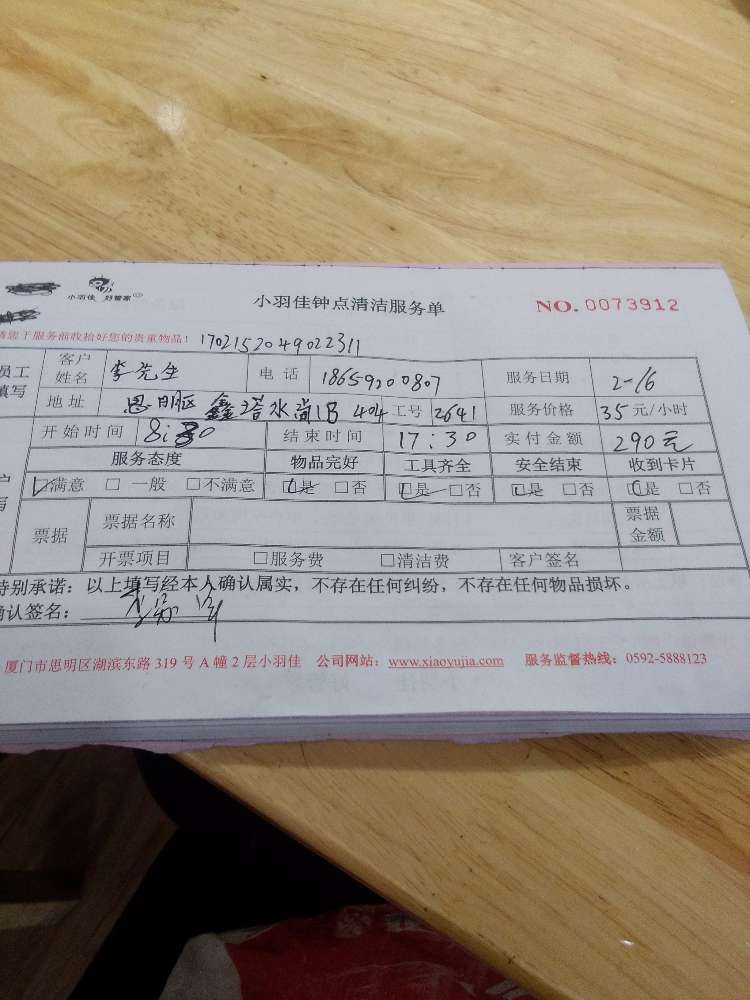 小羽佳 好管家
小羽佳钟点清洁服务单
NO. 0073912
请您于服务前收拾好您的贵重物品! 1702152049022311
员工填写 客户姓名 李先生 电话 18659200807 服务日期 2-16
地址 思明区 鑫塔水尚1B 404 工号 2641 服务价格 35元/小时
开始时间 8:30 结束时间 17:30 实付金额 290元
服务态度 物品完好 工具齐全 安全结束 收到卡片
☑满意 □一般 □不满意 ☑是 □否 ☑是 □否 ☑是 □否 ☑是 □否
票据 票据名称 票据金额
开票项目 □服务费 □清洁费 客户签名
特别承诺:以上填写经本人确认属实,不存在任何纠纷,不存在任何物品损坏。
确认签名:
厦门市思明区湖滨东路319号A幢2层小羽佳 公司网站:www.xiaoyujia.com 服务监督热线:0592-5888123